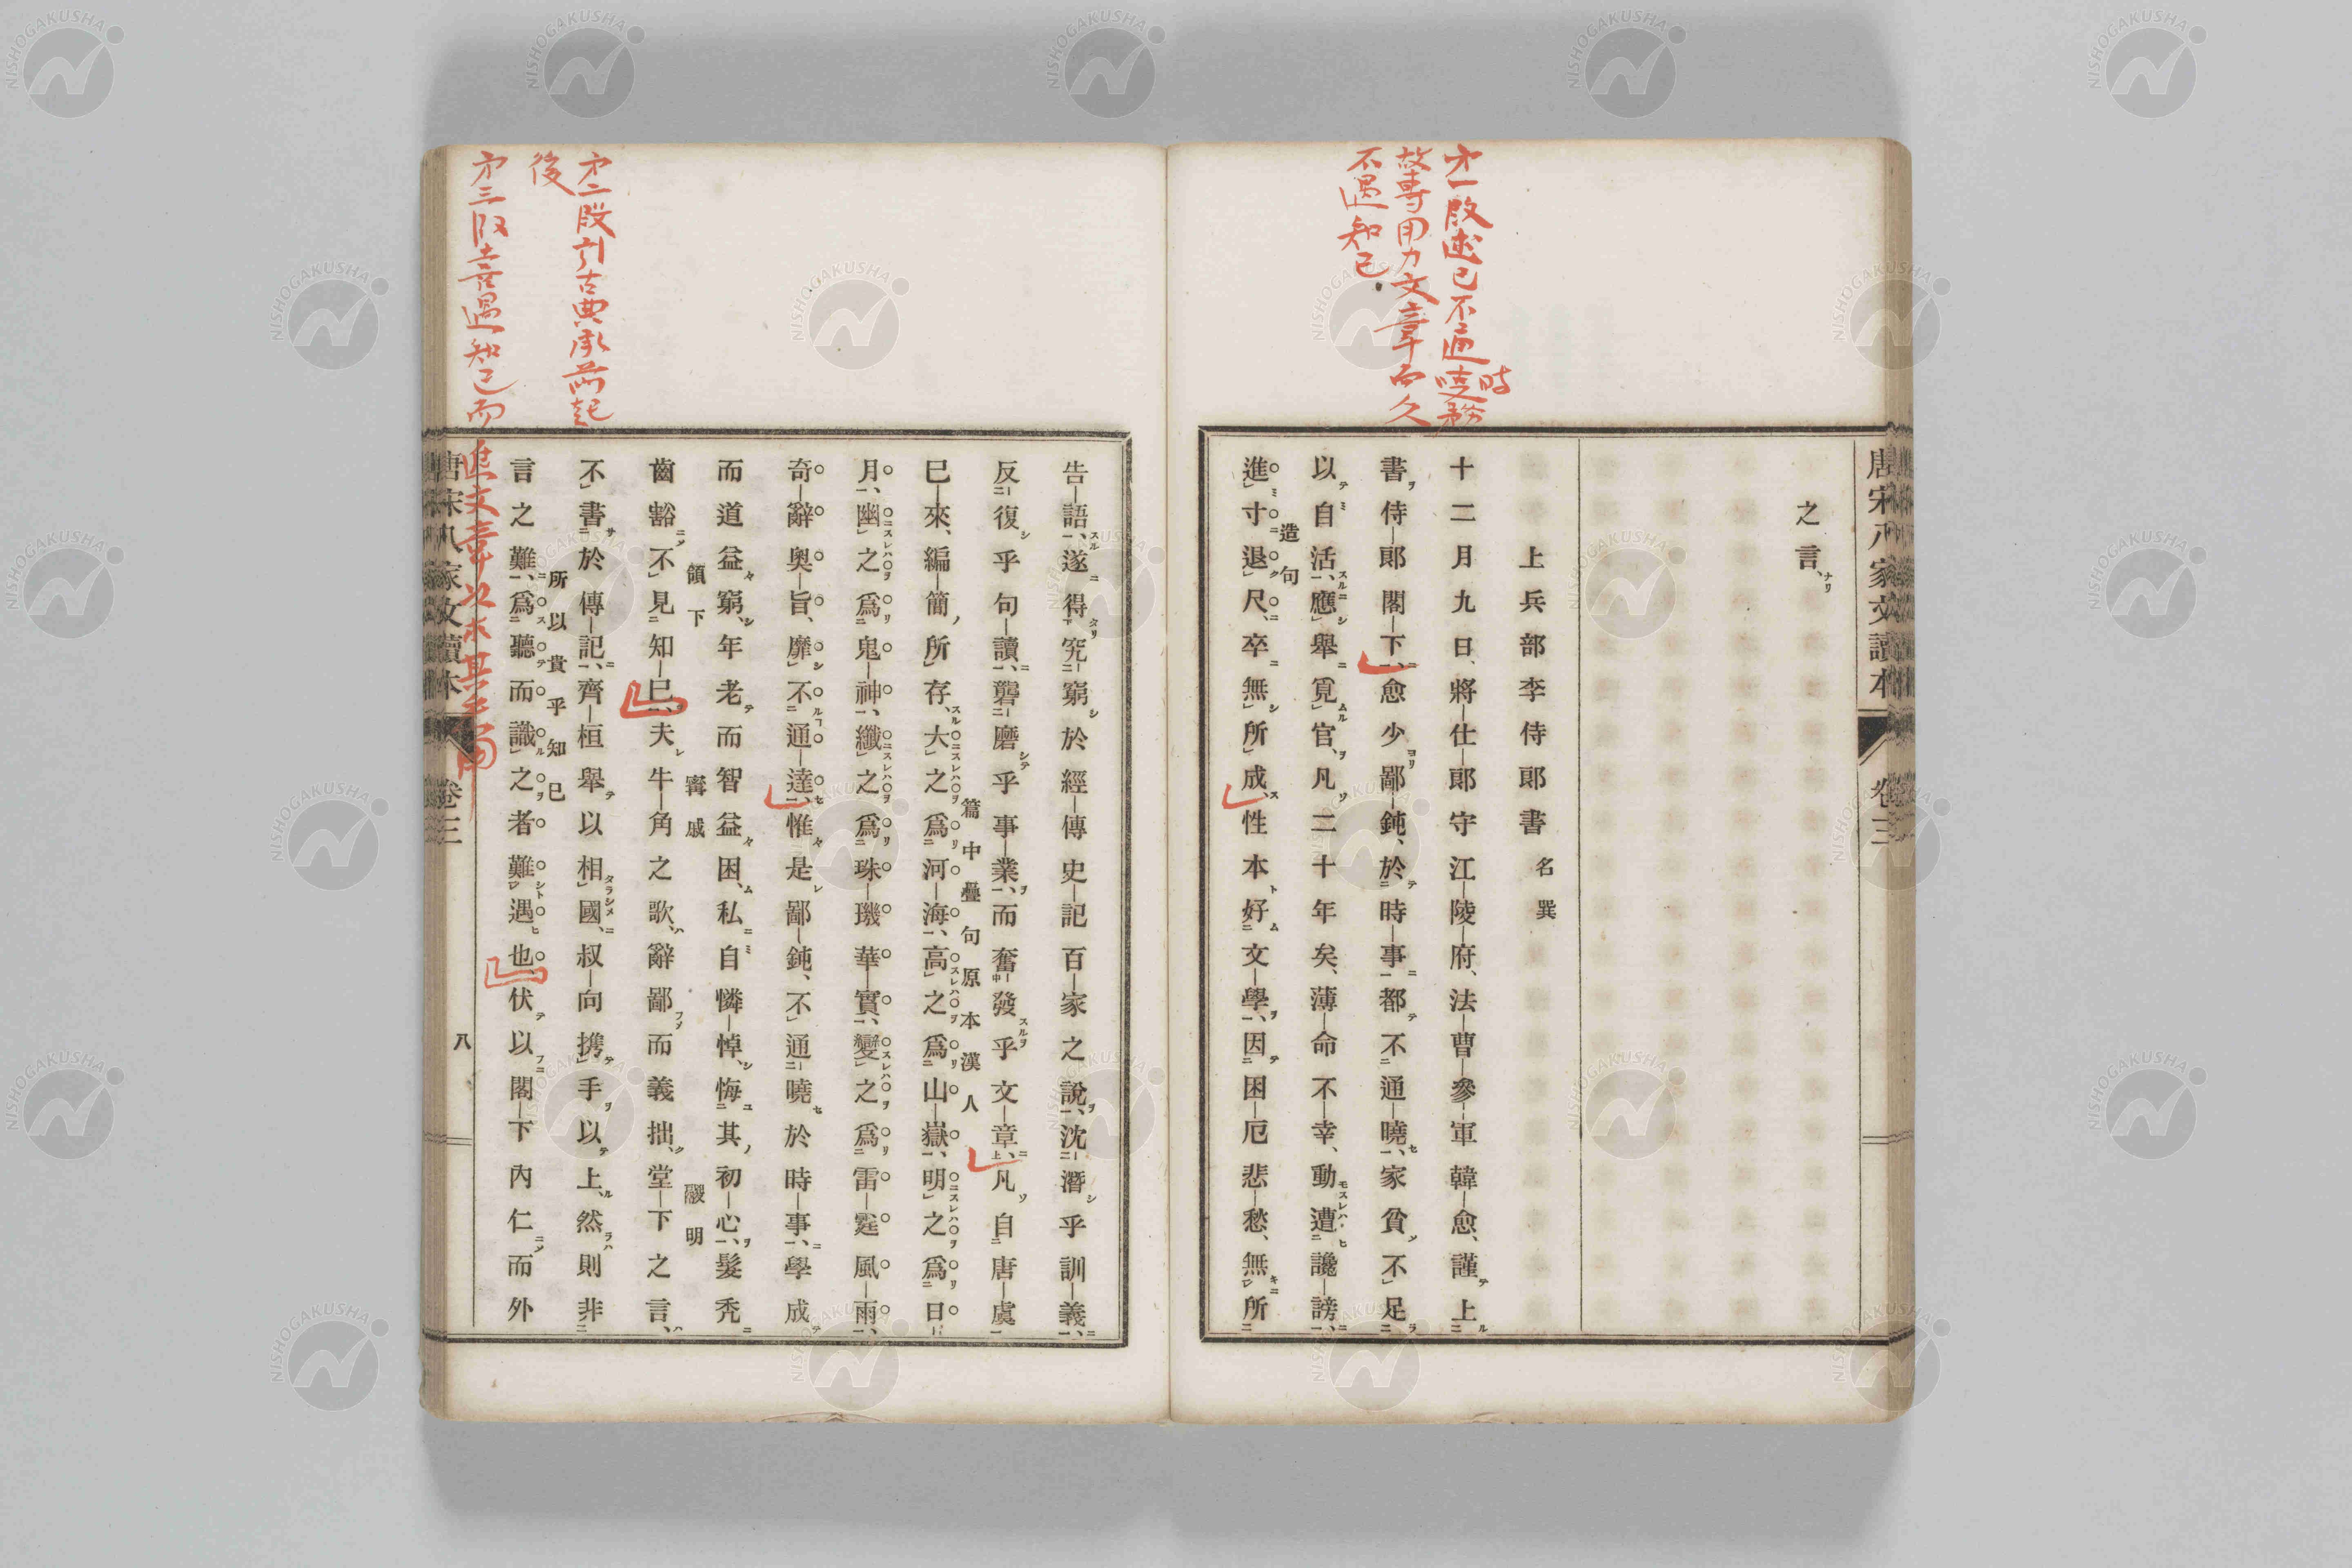 唐宋八家文讀本 卷三
之言、
上兵部李侍郞書 名巽
十二月九日、將仕郞守江陵府、法曹參軍韓愈、謹上
書侍郞閣下、愈少鄙鈍、於時事都不通曉、家貧不足
以自活、應舉覓官、凡二十年矣、薄命不幸、動遭讒謗、
造句
進寸退尺、卒無所成、性本好文學、因困厄悲愁、無所
才一段述己不通時
曉務
故專用力文章而久
不遇知己
告語、遂得究窮於經傳史記百家之說、沈潛乎訓義、
反復乎句讀、礱磨乎事業、而奮發乎文章、凡自唐虞
篇中疊句原本漢人
已來、編簡所存、大之爲河海、高之爲山嶽、明之爲日
月、幽之爲鬼神、纖之爲珠璣華實、變之爲雷霆風雨、
奇辭奧旨、靡不通達、惟是鄙鈍、不通曉於時事、學成
而道益窮、年老而智益困、私自憐悼、悔其初心、髮禿
頷下 甯戚 鬷明
齒豁、不見知已、夫牛角之歌、辭鄙而義拙、堂下之言、
不書於傳記、齊桓舉以相國、叔向携手以上、然則非
所以貴乎知已
言之難、爲聽而識之者難遇也、伏以閣下內仁而外
才二段引古典承前起
後
才三段喜遇知己而進文章以求其
唐宋八家文讀本 卷三 八